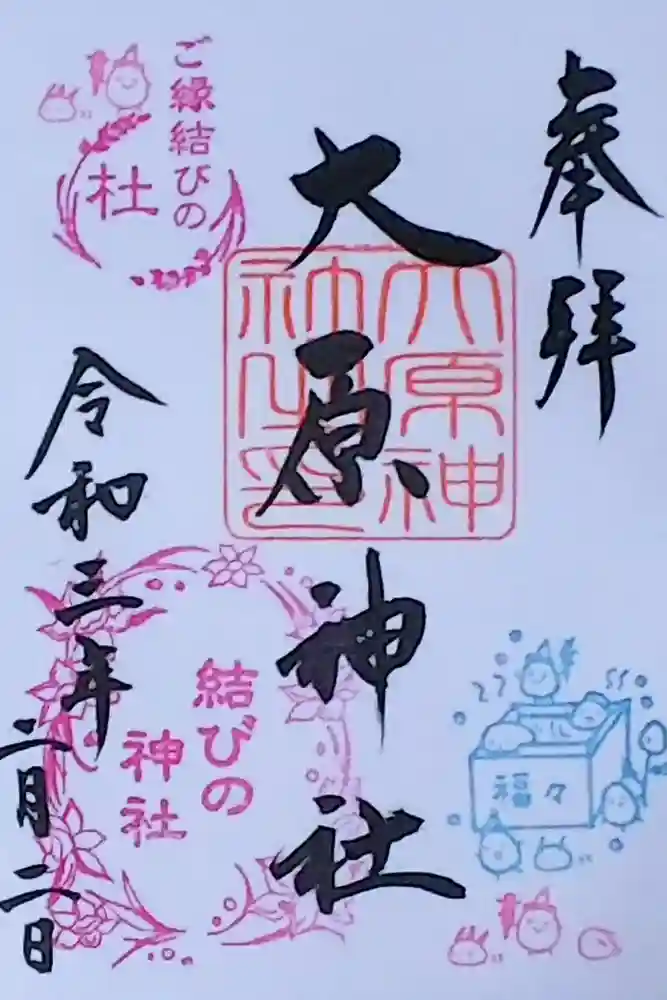 奉拝
大原神社
大原神
社之印
ご縁結びの
杜
結びの
神社
令和三年
二月二日
福々